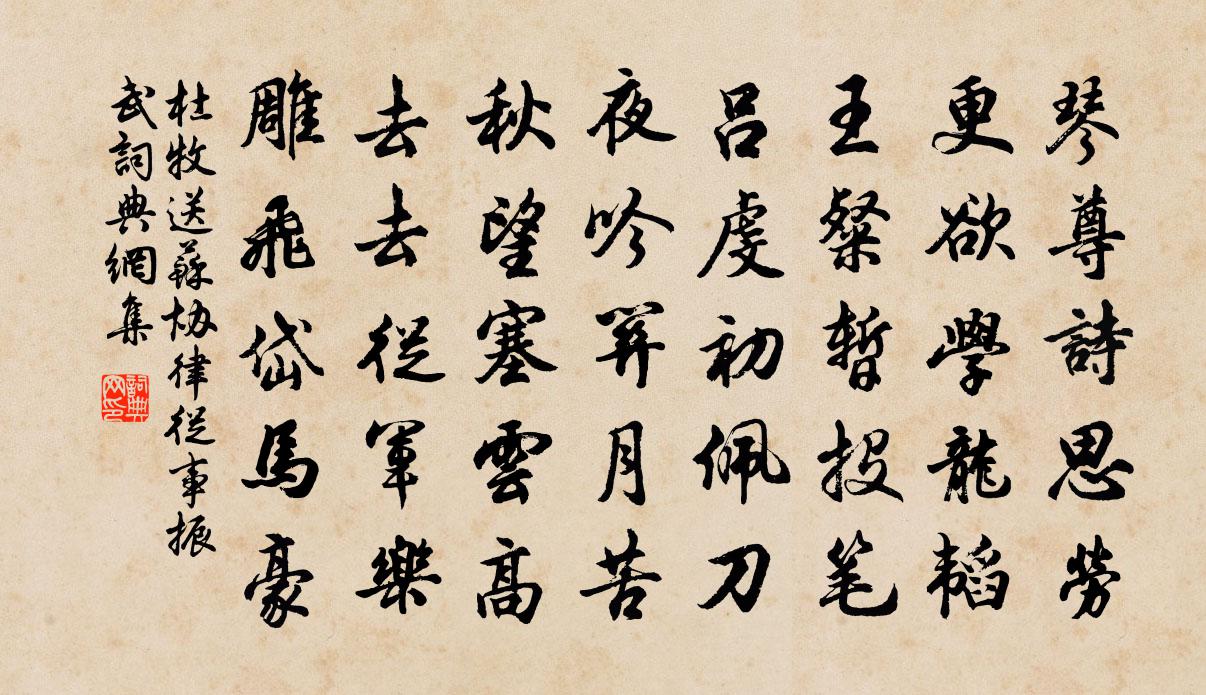 琴尊詩思勞
更欲學龍韜
王粲暫投笔
呂虔初佩刀
夜吟關月苦
秋望塞雲高
去去從軍樂
雕飛岱馬豪
杜牧送蘇協律從事振
武詞典網集
詞典
网印